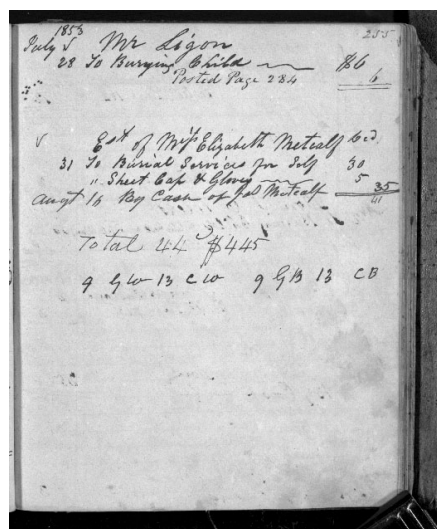 1853 255
July Mr Ligon
28 To Burying Child $6
Posted Page 284 6
Est of Miss Elizabeth Metcalf
31 To Burial Services for Self 30
" Sheet Cap & Gloves 5
Augt 16 By Cash of Metcalf 35
41
Total 44 $445
9 GW 13 CW 9 GB 13 CB